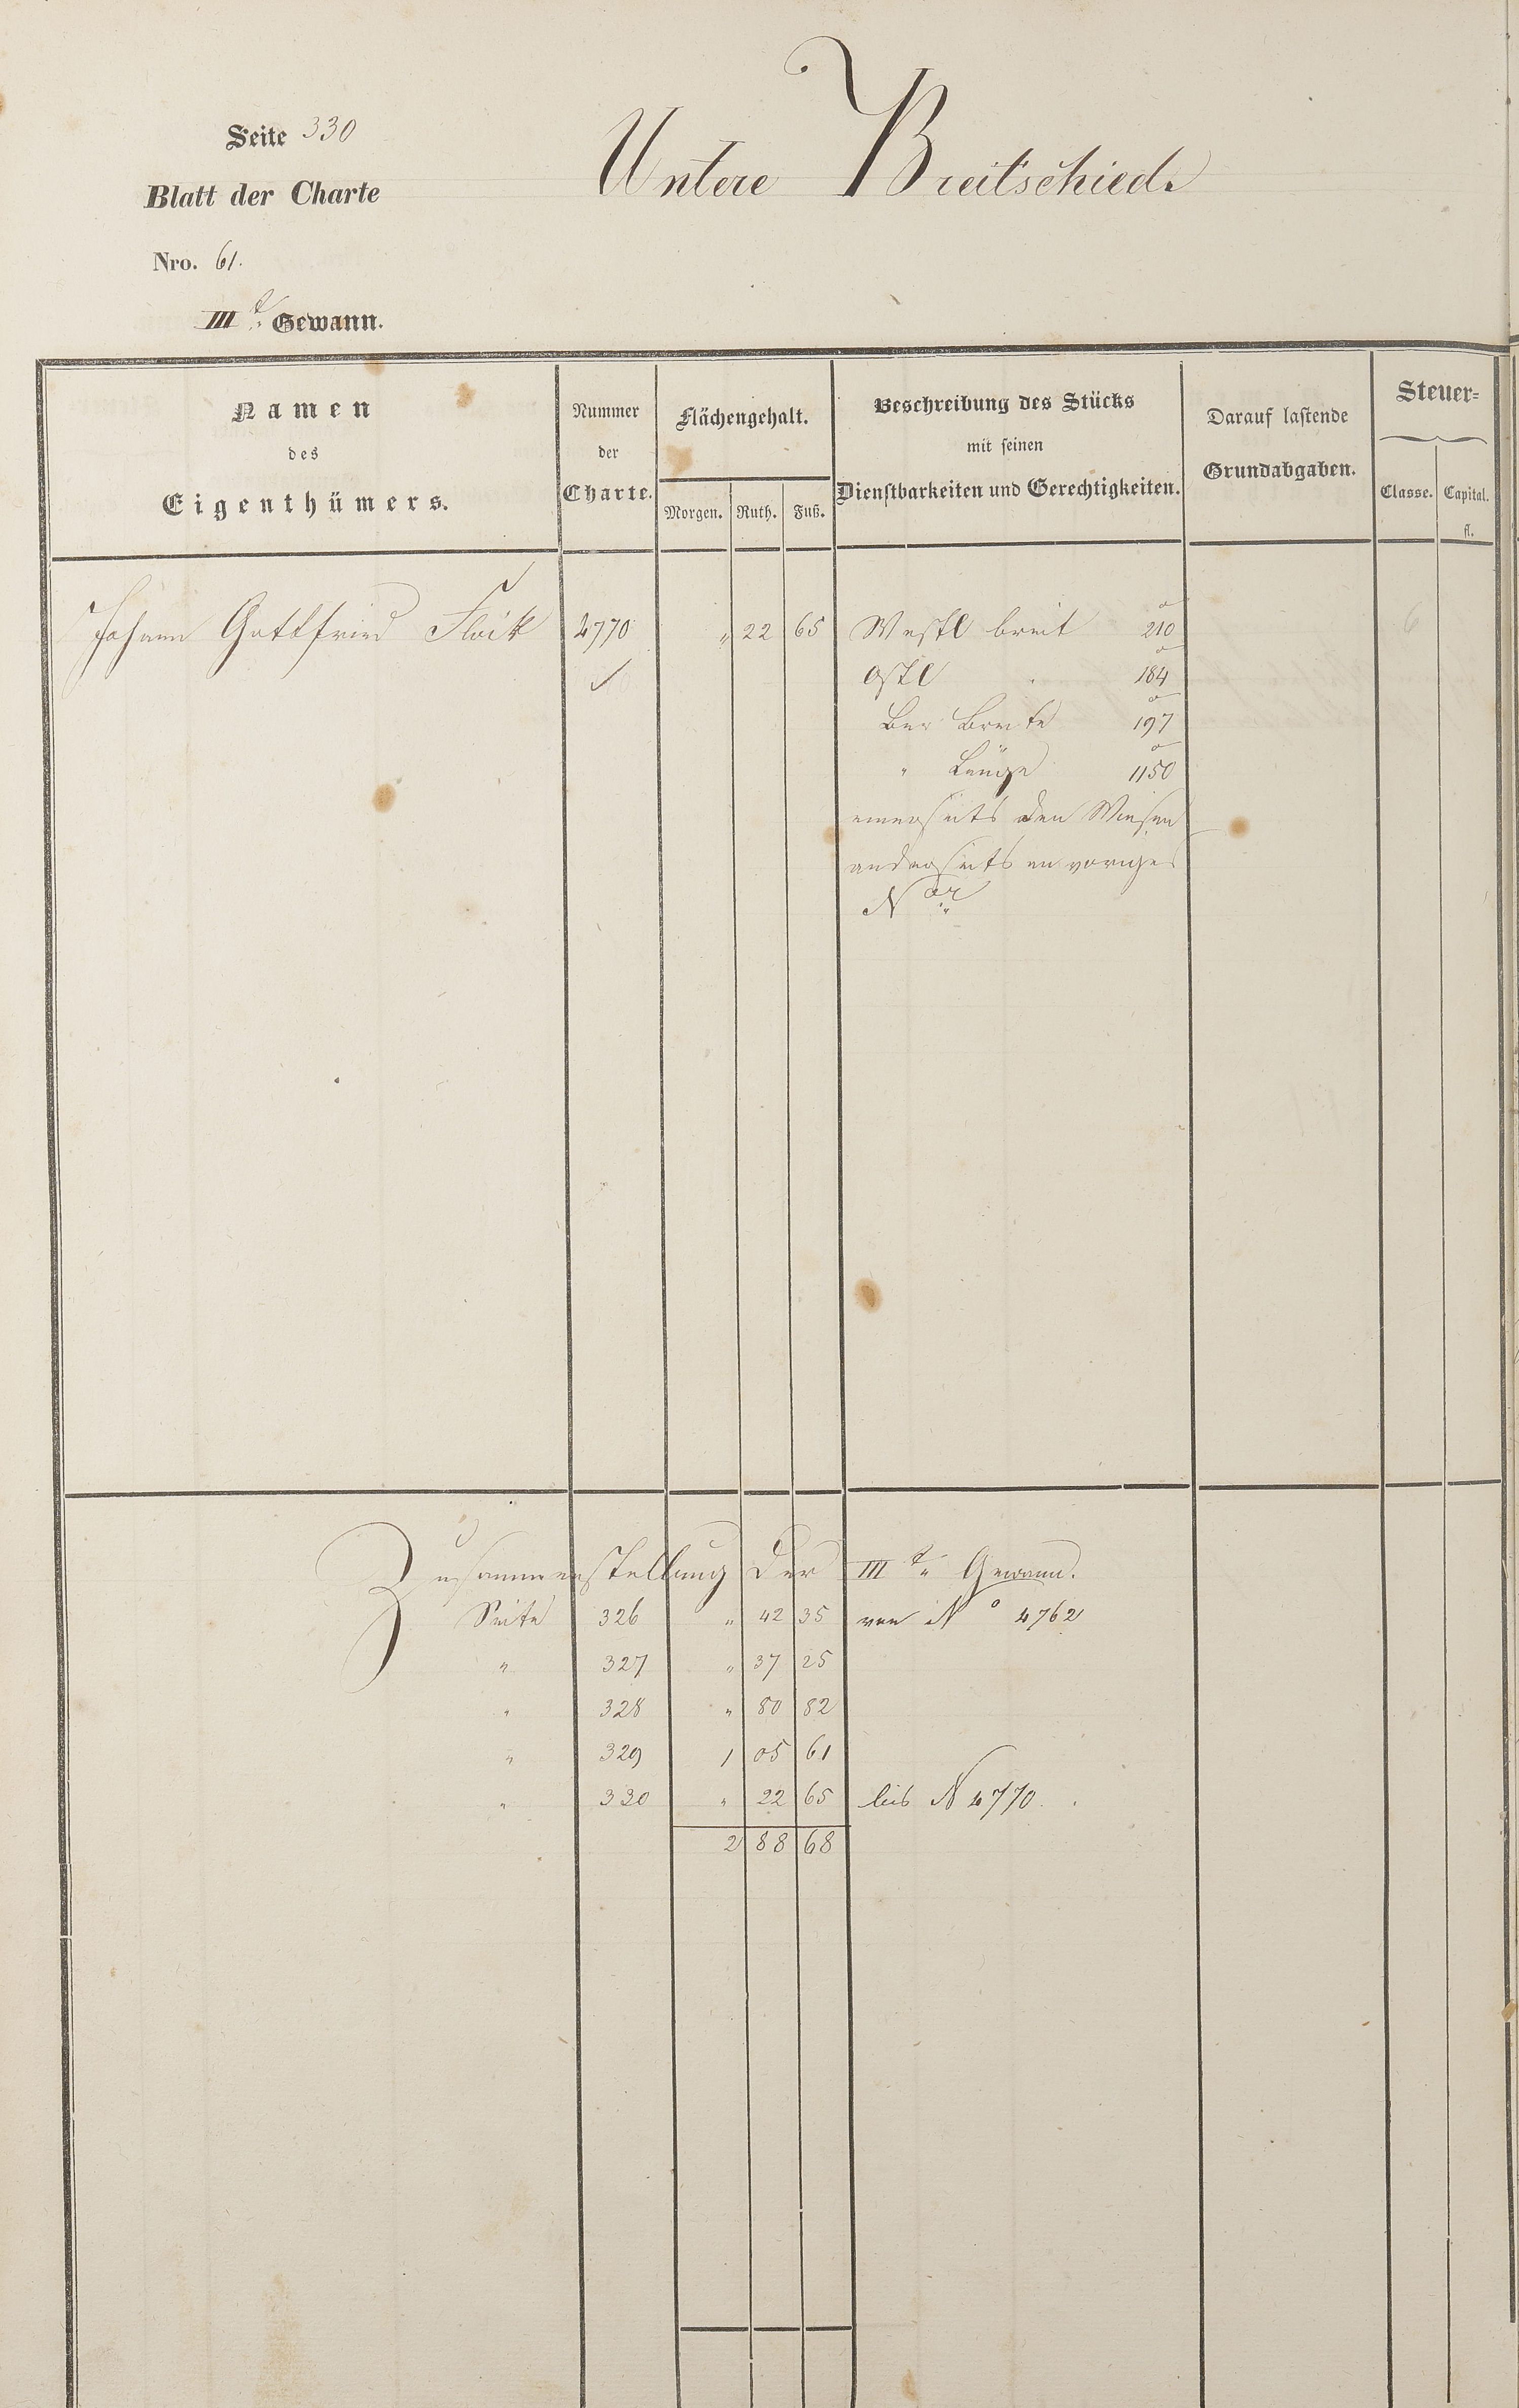 Seite 330
Untere Breitschied.
Blatt der Charte
Nro. 61.
III.te Gewann.
Namen
des
Eigenthümers.
Nummer
der
Charte.
Flächengehalt.
Morgen. Ruth. Fuß.
Beschreibung des Stücks
mit seinen
Dienstbarkeiten und Gerechtigkeiten.
Darauf lastende
Grundabgaben.
Steuer=
Classe. Capital.
fl.
Johann Gottfried Flaik 4770 " 22 65 Westl breit 210
Ostl " 184
Ber Breite 197
" Länge 1150
einerseits den Wiesen
anderseits an voriger
Nor
Zusammenstellung der III te Gewann.
Seite 326 " 42 35 von No 4762
" 327 " 37 25
" 328 " 80 82
" 329 1 05 61
" 330 " 22 65 bis N 4770.
2 88 68